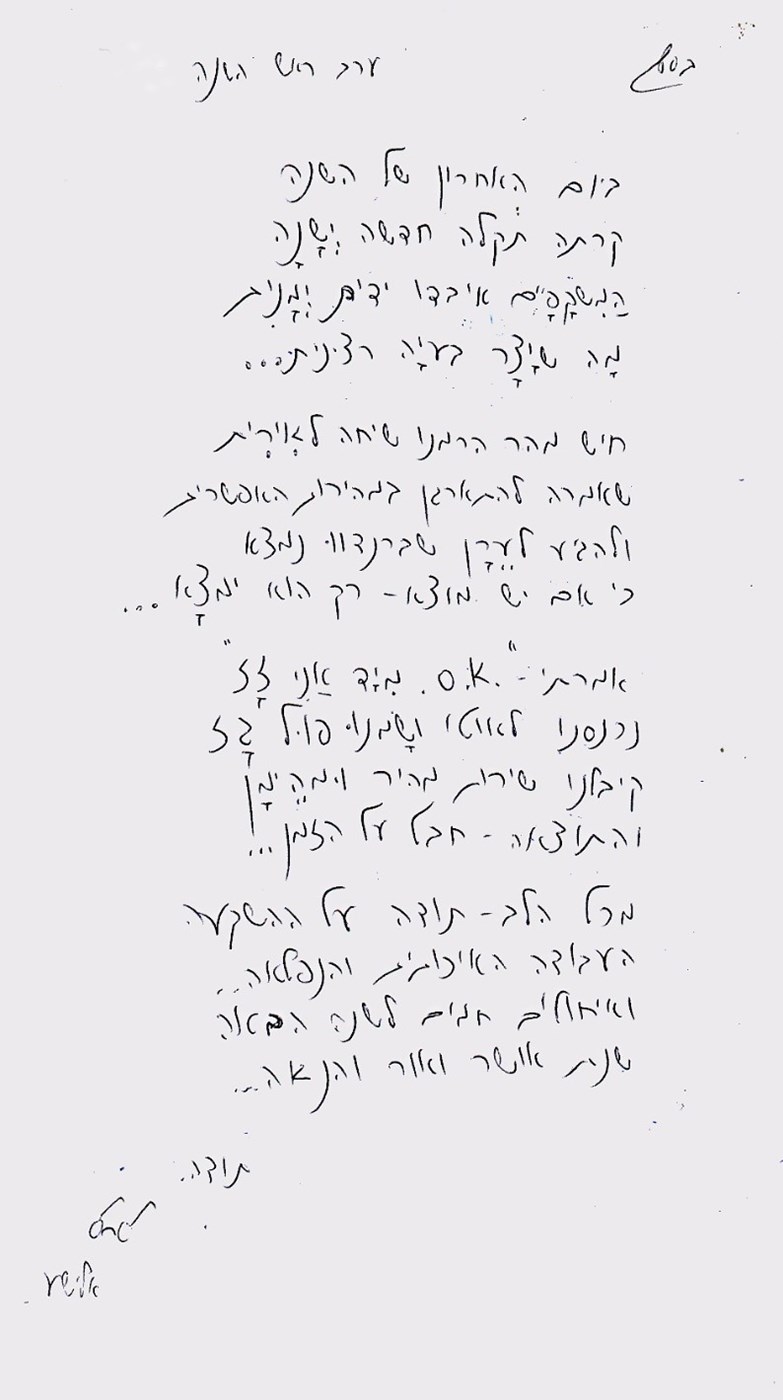 בס"ד ערב ראש השנה
ביום האחרון של השנה
קרתה תקלה חדשה יְשָׁנָה
הַמִשְקָפַיִם איבדו ידית יְמָנִית
מָה שיָצָר בעיָה רצינית...
חיש מהר הרמנו שיחה לאירית
שאמרה להתארגן במהירות האפשרית
ולהגיע לעֵרָן שברנדווי נמצא
כי אם יש מוצא - רק הוא ימצָא...
אמרתי - "O.K. מִיָד אֲנִי זָז"
נכנסנו לאוטו ושָמנו פול גָז
קיבלנו שירות מהיר ומהֵימָן
והתוצאה - חבל על הזמן...
מכל הלב - תודה על ההשקעה
העבודה האיכותית והנפלאה...
ואיחולים חמים לשנה הבאה
שנת אושר ואור והנאה...
תודה.
אלישע